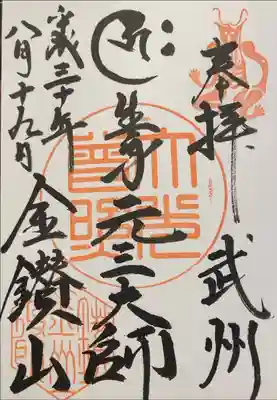 奉拝 武州
元三大師
平成三十年
八月十九日
金鑚山
大光
普照